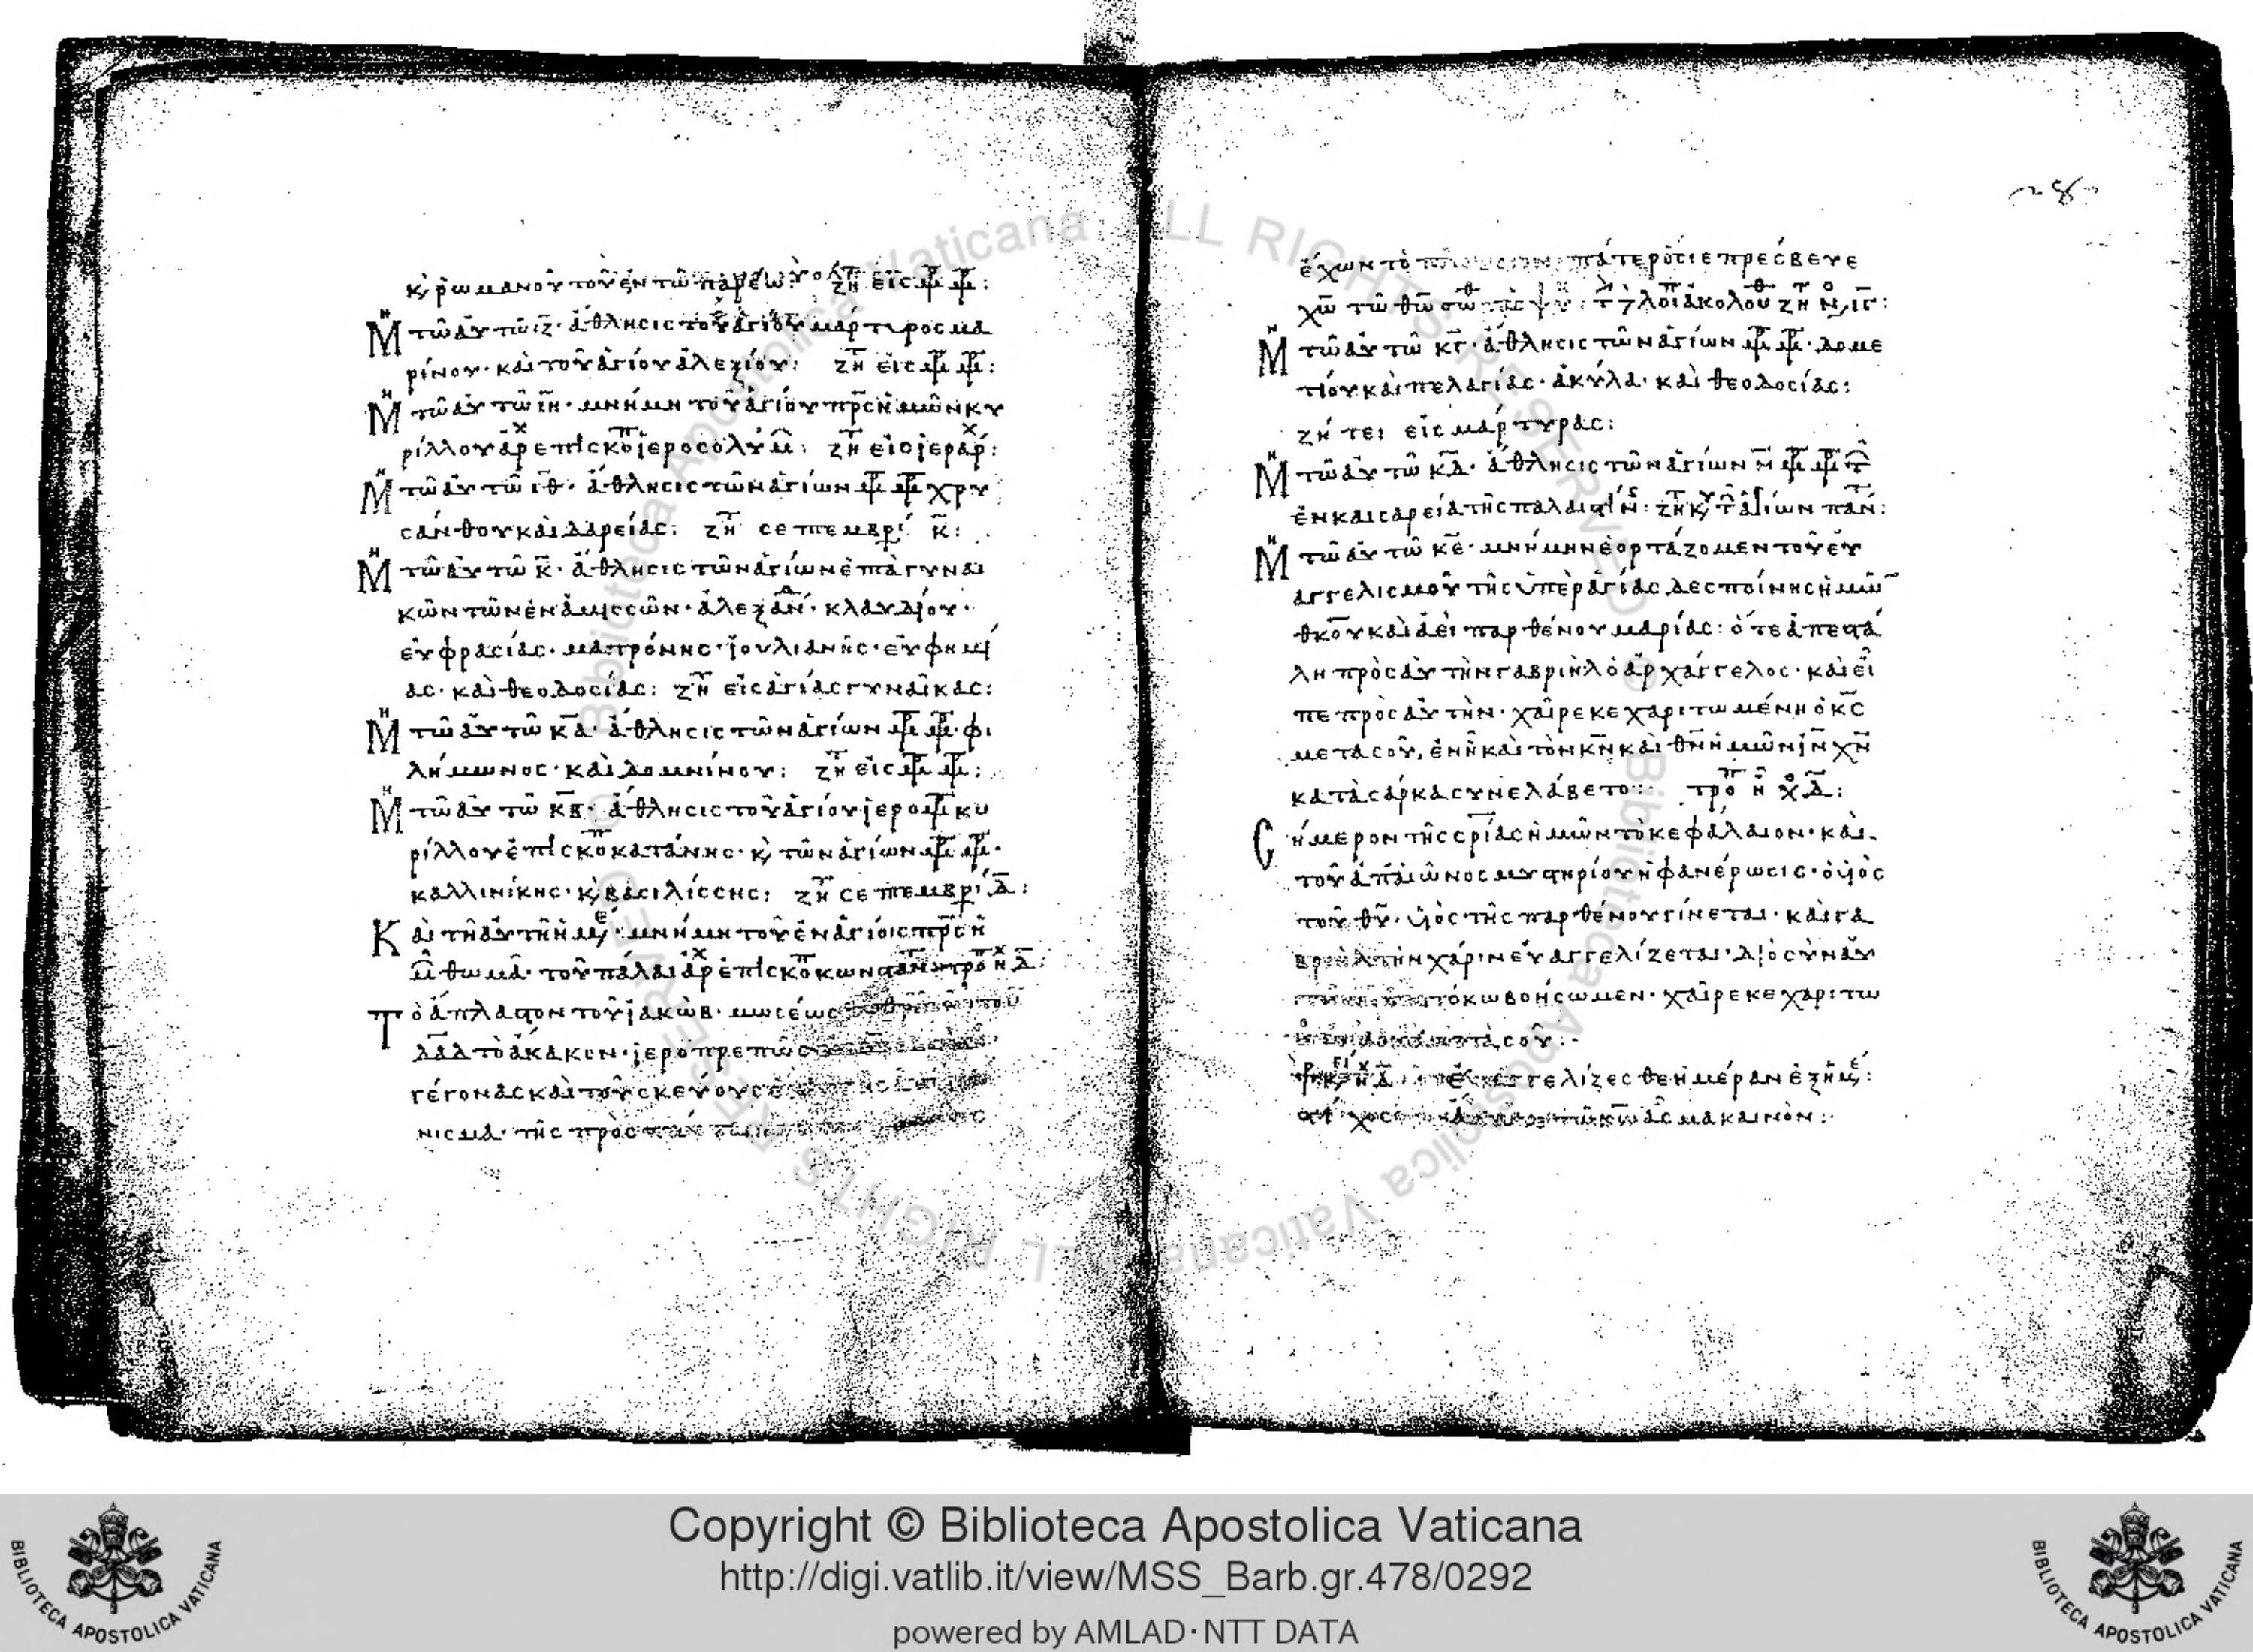 κ, ρωμανοῦ τοῦ ἐν τῶ παρίω: ζη εἰς μρ μρ:
Μη τῶ αὐτῶ ιζ· ἄθλησις τοῦ ἁγίου μάρτυρος μα
ρίνου· καὶ τοῦ ἁγίου ἀλεξίου: ζητ εἰς μρ μρ:
Μη τῶ αὐτῶ ιη· μνήμη τοῦ ἁγίου πρς ἡμῶν κυ
ρίλλου ἀρχεπισκοπ ἱεροσολύμ: ζητ εἰς ἱεράρχ:
Μη τῶ αὐτῶ ιθ· ἄθλησις τῶν ἁγίων μρ μρ χρυ
σάνθου καὶ δαρείας: ζητ σεπτεμβρί κ:
Μη τῶ αὐτῶ κ· ἄθλησις τῶν ἁγίων ἑπτὰ γυναι
κῶν τῶν ἐν ἀμισσῶν· ἀλεξάν· κλαυδίου·
εὐφρασίας· ματρόνης· ἰουλιανῆς· εὐφημί
ας· καὶ θεοδοσίας: ζητ εἰς ἁγίας γυναῖκας:
Μη τῶ αὐτῶ κα· ἄθλησις τῶν ἁγίων μρ μρ· φι
λήμωνος· καὶ δομνίνου: ζητ εἰς μρ μρ:
Μη τῶ αὐτῶ κβ· ἄθλησις τοῦ ἁγίου ἱερομρ κυ
ρίλλου ἐπισκοπ κατάνης· κ, τῶν ἁγίων μρ μρ·
καλλινίκης· κ, βασιλίσσης: ζητ σεπτεμβρί δ:
Καὶ τῆ αὐτῆ ἡμε· μνήμη τοῦ ἐν ἁγίοις πρς ἡ
μ θωμᾶ· τοῦ πάλαι ἀρχεπισκοπ κωνσταν τροπ ηχ δ:
Τὸ ἄπλαστον τοῦ ἰακὼβ· μωσέως
δαδ τὸ ἄκακον· ἱεροπρεπῶς
γέγονας καὶ τοῦ σκεύους
νισμα· τῆς πρὸς
ἔχων τὸ πάτερ ὅτι ἐπρέσβευε
χω τῶ θω σωθ λοιπ ἀκολουθ ζητ ν, ιγ:
Μη τῶ αὐτῶ κγ· ἄθλησις τῶν ἁγίων μρ μρ· δομε
τίου καὶ πελαγίας· ἀκύλα· καὶ θεοδοσίας:
ζήτει εἰς μάρτυρας:
Μη τῶ αὐτῶ κδ· ἄθλησις τῶν ἁγίων η μρ μρ τ
ἐν καισαρεία τῆς παλαιστίν: ζητ κ, τῶν ἁγίων πάντ:
Μη τῶ αὐτῶ κε· μνήμην ἑορτάζομεν τοῦ εὐ
αγγελισμοῦ τῆς ὑπεραγίας δεσποίνης ἡμῶν
θκου καὶ ἀεὶ παρθένου μαρίας: ὅτε ἀπεστά
λη πρὸς αὐτὴν γαβριὴλ ὁ ἀρχάγγελος· καὶ εἶ
πε πρὸς αὐτὴν· χαῖρε κεχαριτωμένη ὁ κς
μετα σοῦ, ἐν ἧ καὶ τὸν κν καὶ θν ἡμῶν ιν χν
κατὰ σάρκα συνελάβετο: τροπ ηχο δ:
Σήμερον τῆς σρίας ἡμῶν τὸ κεφάλαιον· καὶ
τοῦ ἀπαἰῶνος μυστηρίου ἡ φανέρωσις· ὁ ὑιὸς
τοῦ θυ· ὑιὸς τῆς παρθένου γίνεται· καὶ γα
βριὴλ τὴν χάριν εὐαγγελίζεται· διὸ σὺν αὐ
τῶ τῆ θκω βοήσωμεν· χαῖρε κεχαριτω
μένη ὁ κς μετὰ σοῦ:
προκει ηχ δ εὐαγγελίζεσθε ἡμέραν ἐξ ἡμε:
στίχος τῶ κω ἆσμα καινὸν:
Copyright © Biblioteca Apostolica Vaticana
http://digi.vatlib.it/view/MSS_Barb.gr.478/0292
powered by AMLAD·NTT DATA
BIBLIOTECA APOSTOLICA VATICANA
BIBLIOTECA APOSTOLICA VATICANA